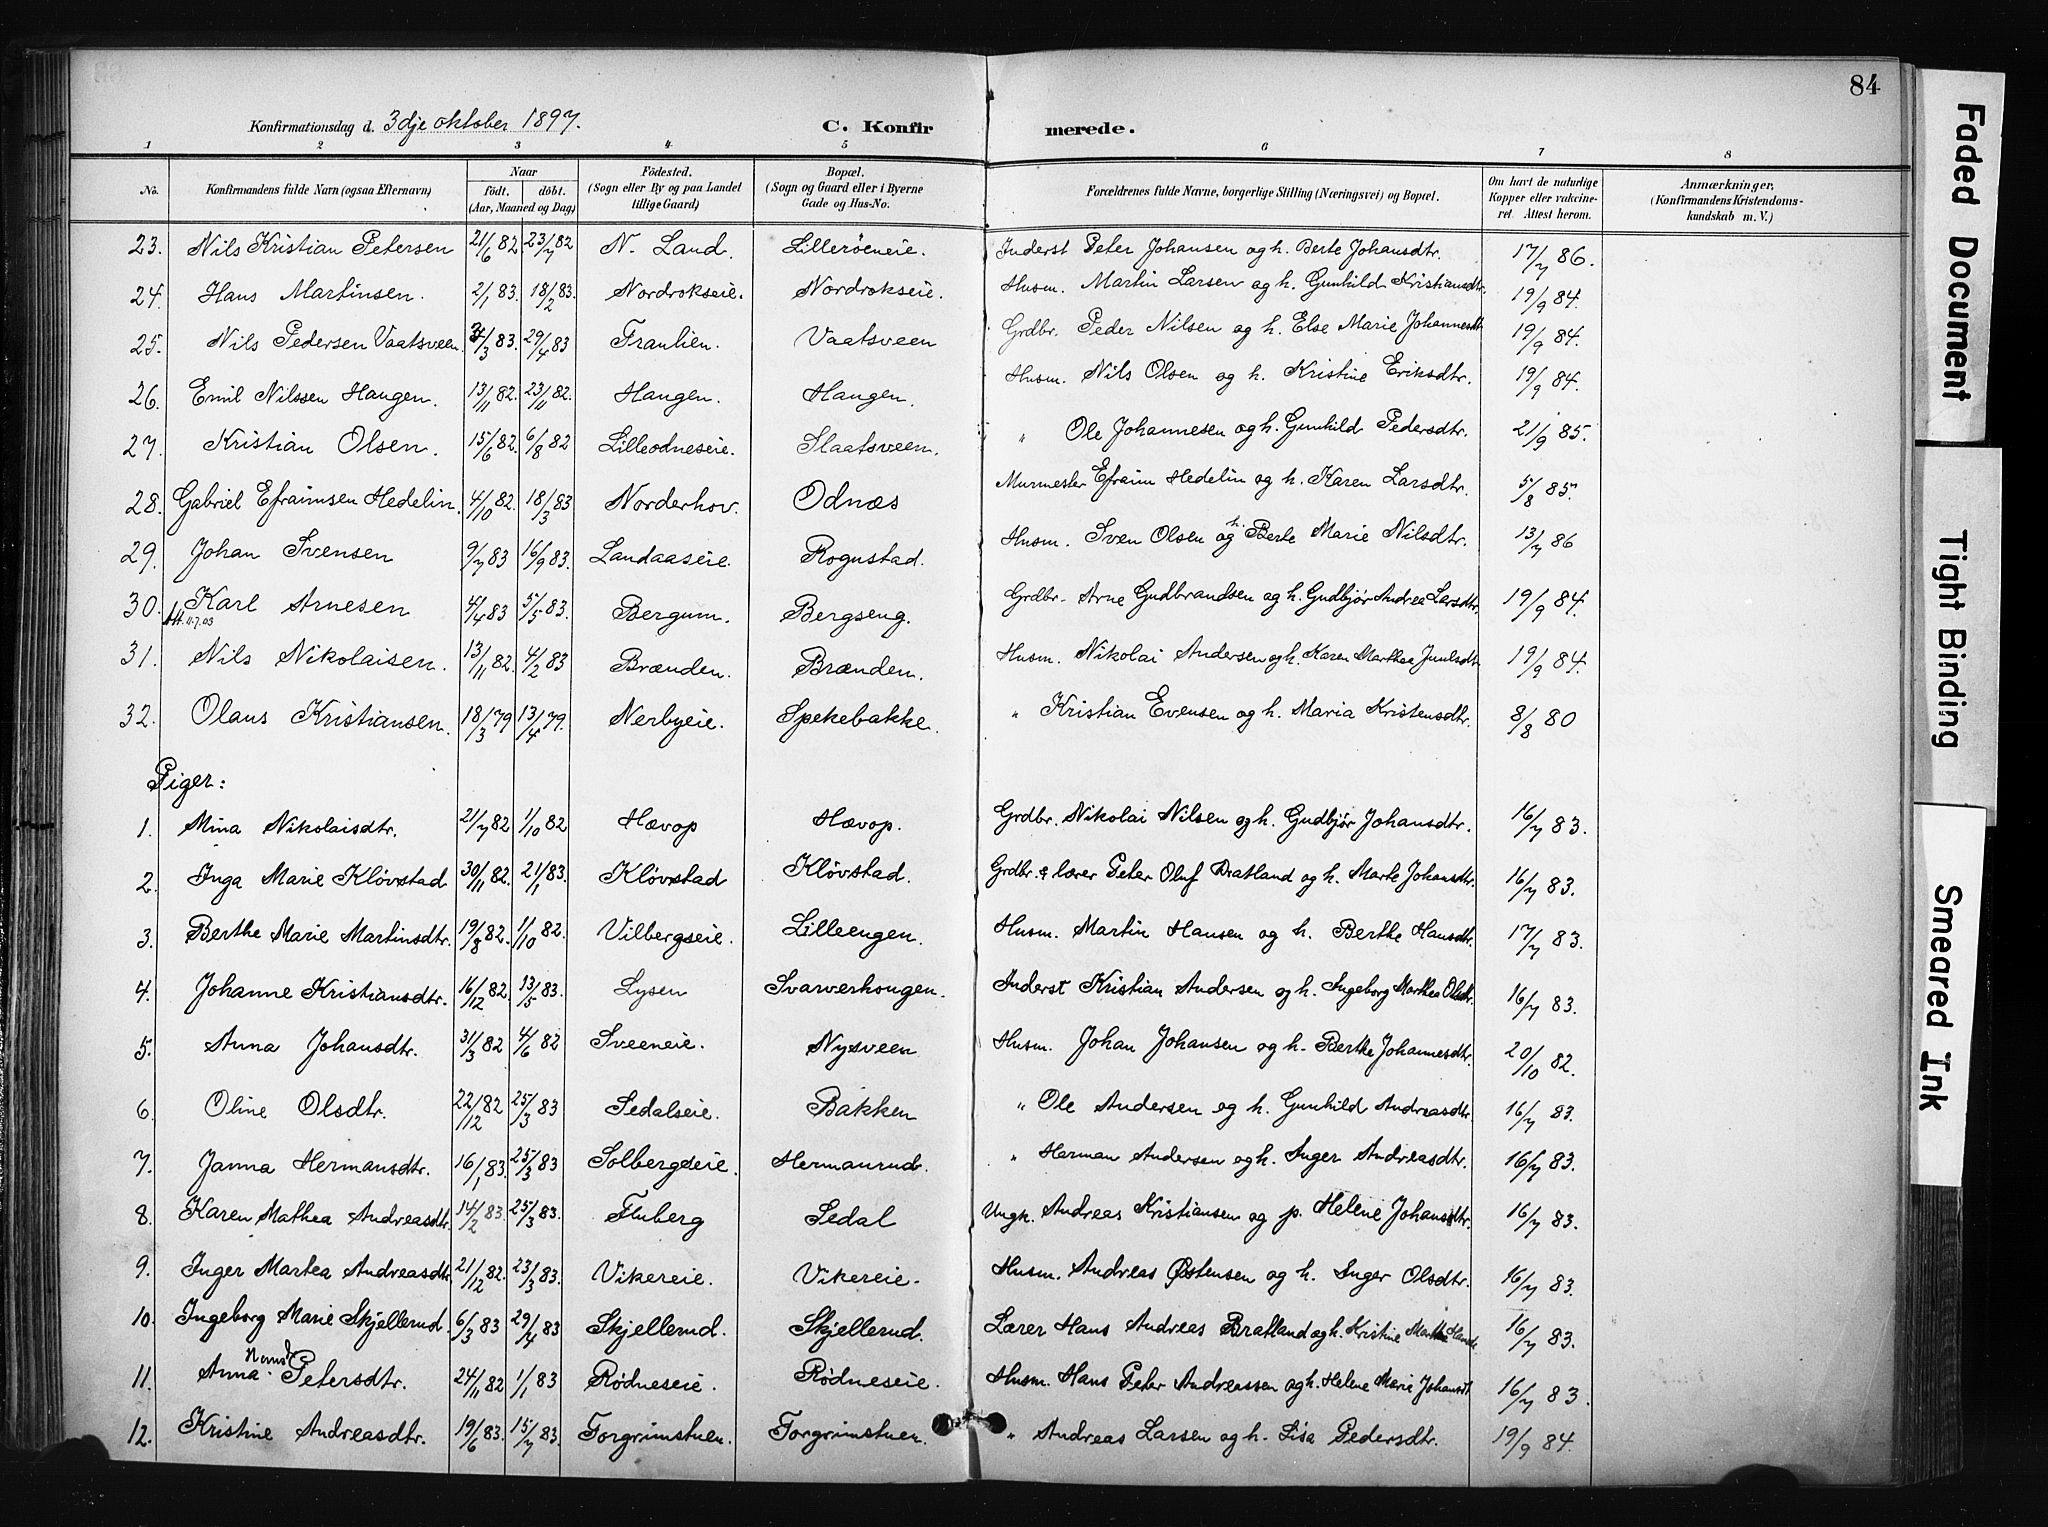 84
Konfirmationsdag d. 3dje oktober 1897. C. Konfirmerede.
1 2 3 4 5 6 7 8
No. Konfirmandens fulde Navn (ogsaa Efternavn) Naar født. døbt. (Aar, Maaned og Dag) Födested. (Sogn eller By og paa Landet tillige Gaard) Bopæl. (Sogn og Gaard eller i Byerne Gade og Hus-No. Forældrenes fulde Navne, borgerlige Stilling (Næringsvei) og Bopæl. Om havt de naturlige Kopper eller vakcineret. Attest herom. Anmærkninger, (Konfirmandens Kristendomskundskab m. V.)
23. Nils Kristian Petersen 21/6 82. 23/7 82 N. Land. Lilleröeneie. Inderst Peter Johansen og h. Berte Johansdtr. 17/7 86.
24. Hans Martinsen. 2/1 83. 18/2 83. Nordrokseie. Nordrokseie. Husm. Martin Larsen og h. Gunhild Kristiansdtr. 19/9 84.
25. Nils Pedersen Vaatsveen. /3 83. 29/4 83 Fraulien. Vaatsveen Grdbr. Peder Nilsen og h. Else Marie Johannesdt 19/9 84.
26. Emil Nilssen Haugen. 13/11 82. 23/11 82. Haugen. Haugen. Husm. Nils Olsen og h. Kristine Eriksdtr. 19/9 84.
27. Kristian Olsen. 15/6 82. 6/8 82 Lilleodneseie. Slaatsveen. " Ole Johannesen og h. Gunhild Pedersdtr. 21/9 85.
28. Gabriel Efraimsen Hedelin. 4/10 82. 18/3 83 Norderhov. Odnæs Murmester Efraim Hedelin og h. Karen Larsdtr. 5/8 85.
29. Johan Svensen 9/7 83 16/9 83. Landaaseie. Rognstad. Husm. Sven Olsen og h. Berte Marie Nilsdtr. 13/7 86
30. Karl Arnesen 4/4 83 5/5 83. Bergum. Bergseng. Grdbr. Arne Gudbrandsen og h. Gudbjør Andrea Larsdtr. 19/9 84.
Att. 11.7.03
31. Nils Nikolaisen. 13/11 82. 4/2 83 Brænden. Brænden. Husm. Nikolai Andersen og h. Karen Marthea Juulsdt 19/9 84.
32. Olaus Kristiansen. 18/3 79 13/4 79. Nerbyeie. Spekebakke. " Kristian Evensen og h. Maria Kristensdtr. 8/8 80
Piger:
1. Mina Nikolaisdtr. 21/7 82 1/10 82 Hævop Hævop. Grdbr. Nikolai Nilsen og h. Gudbjør Johansdtr. 16/7 83.
2. Inga Marie Kløvstad 30/11 82. 21/1 83. Kløvstad Kløvstad. Grdbr. & lærer Peter Oluf Bratland og h. Marte Johansdtr. 16/7 83.
3. Berthe Marie Martinsdtr. 19/8 82. 1/10 82. Vilbergseie. Lilleengen. Husm. Martin Hansen og h. Berthe Hansdtr. 17/7 83.
4. Johanne Kristiansdtr. 16/12 82. 13/5 83. Lysen Svarverhougen. Inderst Kristian Andersen og h. Ingeborg Marthea Olsdtr. 16/7 83.
5. Anna Johansdtr. 31/3 82 4/6 82 Sveeneie. Nysveen Husm. Johan Johansen og h. Berthe Johannesdtr. 20/10 82.
6. Oline Olsdtr. 22/12 82 25/3 83 Sedalseie. Bakken " Ole Andersen og h. Gunhild Andreasdtr. 16/7 83.
7. Janna Hermansdtr. 16/1 83. 25/3 83 Solbergseie. Hermanrud. " Herman Andersen og h. Inger Andreasdtr. 16/7 83.
8. Karen Mathea Andreasdtr. 14/2 83. 25/3 83. Fluberg Sedal Ungk. Andreas Kristiansen og p. Helene Johansdtr. 16/7 83.
9. Inger Martea Andreasdtr. 21/12 82. 23/3 83. Vikereie. Vikereie. Husm. Andreas Østensen og h. Inger Olsdtr. 16/7 83.
10. Ingeborg Marie Skjellerud. 6/3 83 29/4 83 Skjellerud. Skjellerud. Lærer Hans Andreas Bratland og h. Kristine Marthe 16/7 83.
11. Anna Petersdtr. 24/11 82 1/1 83 Rødneseie. Rødneseie. Husm. Hans Peter Andreassen og h. Helene Marie Johansdt 16/7 83.
12. Kristine Andreasdtr. 19/6 83. 15/7 83. Torgrimstuen. Torgrimstuen. " Andreas Larsen og h. Lisa Pedersdtr. 19/9 84.
Faded Document
Tight Binding
Smeared Ink